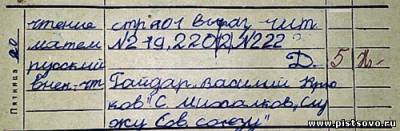 чтение стр 201 выраз. чит.
матем №219, 220(2), №222
русский Д. 5
внен. чт Гайдар. Василий Крю
ков" С. Михалков „Слу
жу Сов. союзу"
Пятница
www.pistsovo.ru